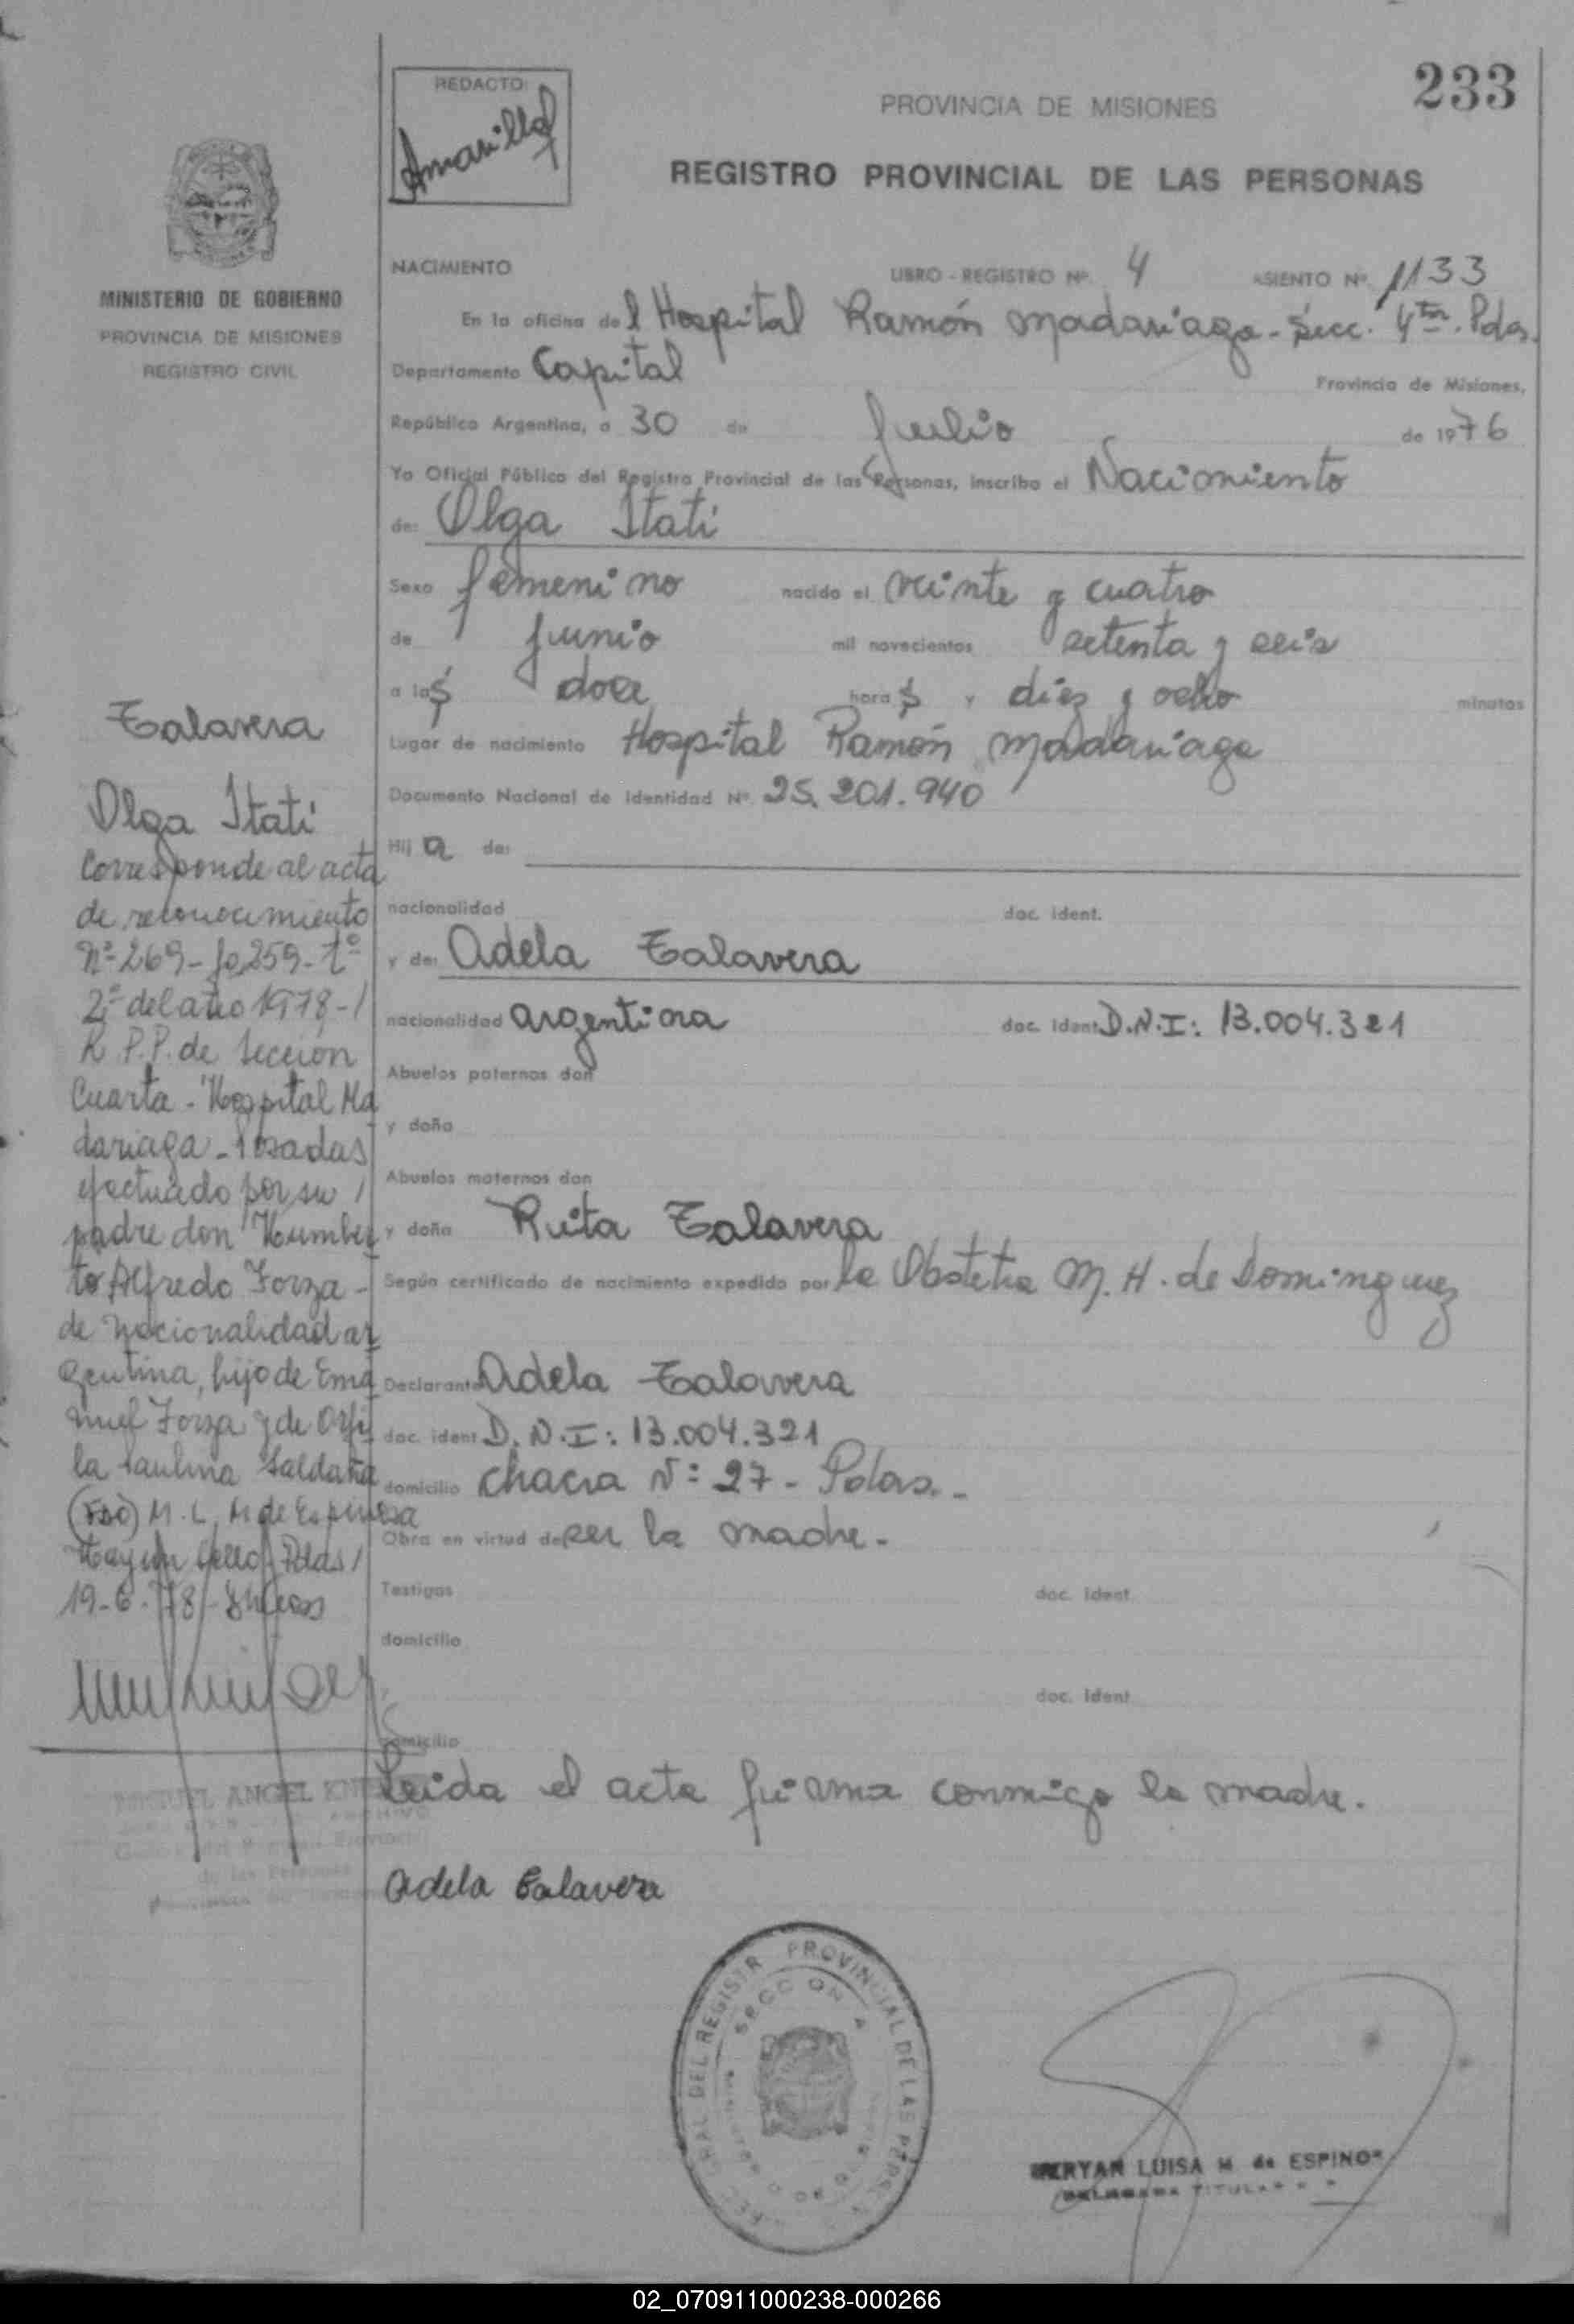 233
REDACTO:
Amarilla
PROVINCIA DE MISIONES
REGISTRO PROVINCIAL DE LAS PERSONAS
MINISTERIO DE GOBIERNO
PROVINCIA DE MISIONES
REGISTRO CIVIL
NACIMIENTO LIBRO - REGISTRO Nº. 4 ASIENTO Nº. 1133
En la oficina del Hospital Ramón Madariaga - Secc. 4ta. Pdas.
Departamento Capital Provincia de Misiones,
República Argentina, a 30 de Julio de 1976
Yo Oficial Público del Registro Provincial de las Personas, inscribo el Nacimiento
de: Olga Itatí
Sexo femenino nacido el veinte y cuatro
de junio mil novecientos setenta y seis
a las doce horas y diez y ocho minutos
Lugar de nacimiento Hospital Ramón Madariaga
Documento Nacional de Identidad Nº. 25.201.940
Hija de:
nacionalidad doc. ident.
y de: Adela Talavera
nacionalidad argentina doc. ident. D.N.I: 13.004.321
Abuelos paternos don
y doña
Abuelos maternos don
y doña Rita Talavera
Según certificado de nacimiento expedido por la Obstetra M. H. de Dominguez
Declarante Adela Talavera
doc. ident D.N.I: 13.004.321
domicilio Chacra Nº: 27 - Pdas. -
Obra en virtud de ser la madre.-
Testigos doc. ident.
domicilio
doc. ident.
domicilio
Leida el acta firma conmigo la madre.
Adela Talavera
Talavera
Olga Itatí
Corresponde al acta
de reconocimiento
Nº 269 - fo 259 - tº
2º del año 1978 - /
R.P.P. de Sección
Cuarta - Hospital Ma
dariaga - Posadas
efectuado por su /
padre don Humber
to Alfredo Forza -
de nacionalidad ar
gentina, hijo de Ema
nuel Forza y de Orfi
la Paulina Saldaña
(Fdo) M. L. M de Espinosa
Pdas /
19-6-78 -
MIGUEL ANGEL
de las Personas
GRAL DEL REGISTR PROVINCIAL DE LAS PERS
SECCION 4
MERYAN LUISA M. de ESPINO
DELEGADA TITULAR
02_070911000238-000266